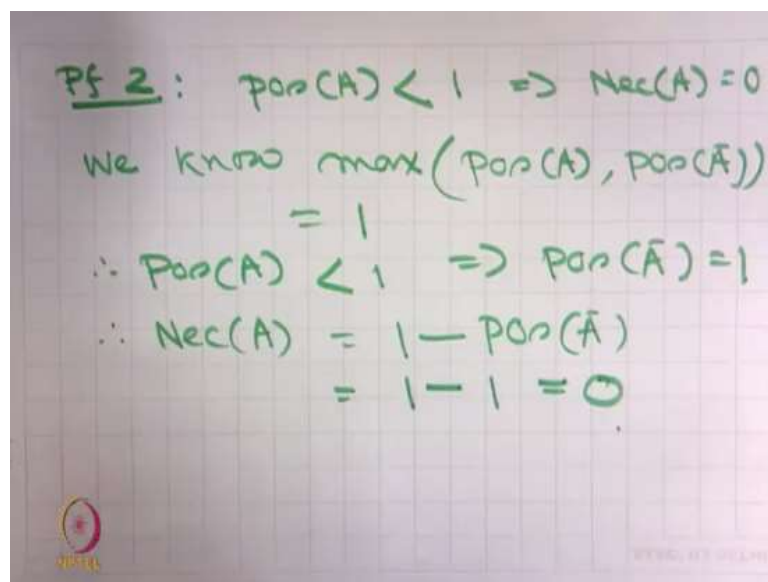 Pf 2: Pos(A) < 1 => Nec(A) = 0
We know max(Pos(A), Pos(Ā))
= 1
∴ Pos(A) < 1 => Pos(Ā) = 1
∴ Nec(A) = 1 — Pos(Ā)
= 1 — 1 = 0
NPTEL